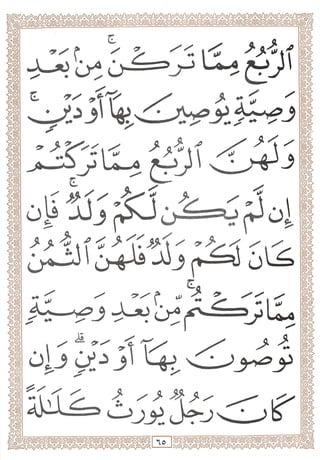 ٱلرُّبُعُ مِمَّا تَرَكْنَ ۚ مِنۢ بَعْدِ
وَصِيَّةٍ يُوصِينَ بِهَآ أَوْ دَيْنٍ ۚ
وَلَهُنَّ ٱلرُّبُعُ مِمَّا تَرَكْتُمْ
إِن لَّمْ يَكُن لَّكُمْ وَلَدٌ ۚ فَإِن
كَانَ لَكُمْ وَلَدٌ فَلَهُنَّ ٱلثُّمُنُ
مِمَّا تَرَكْتُم ۚ مِّنۢ بَعْدِ وَصِيَّةٍ
تُوصُونَ بِهَآ أَوْ دَيْنٍ ۗ وَإِن
كَانَ رَجُلٌ يُورَثُ كَلَـٰلَةً
٦٥